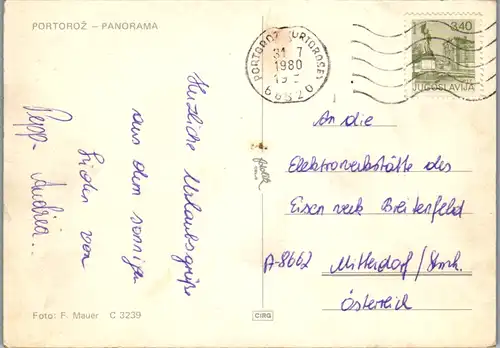 PORTOROŽ – PANORAMA
Herzliche Urlaubsgrüße
aus dem sonnigen
Süden von
Pepp. Andrea.
PORTOROŽ (PORTOROSE)
31. 7
1980
66320
3.40
JUGOSLAVIJA
An die
Elektrowerkstätte des
Eisenwerk Breitenfeld
A-8662 Mitterdorf/Stmk.
Österreich
Foto: F. Mauer C 3239
CIRG